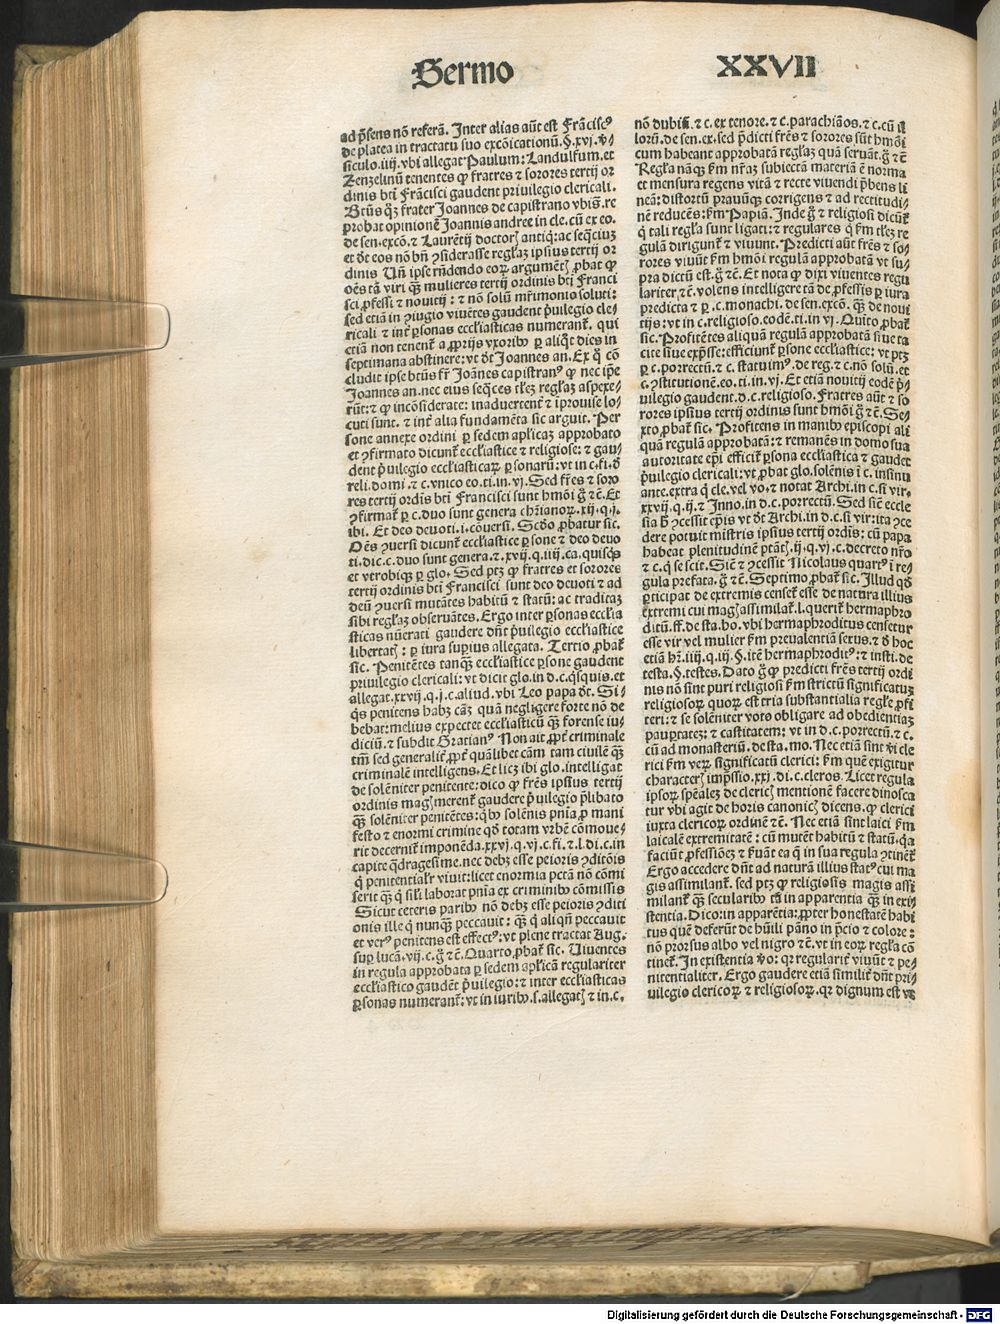 Sermo XXVII
ad p̄sens nō referā. Inter alias aūt est Frācisc⁹
de platea in tractatu suo excōicationū. §. xvj. v̄⸗
siculo. iiij. vbi allegat Paulum: Landulfum. et
Zenzelinū tenentes ꝙ fratres ⁊ sorores tertij or
dinis bt̄i Frācisci gaudent priuilegio clericali.
Bt̄us qꝫ frater Joannes de capistrano vbi s̄. re
probat opinionē Joannis andree in cle. cū ex eo.
de sen. excō. ⁊ Laurētij doctoꝝ antiq̄: ac seq̄ciuꝫ
et dt̄ eos nō bn̄ ꝯsiderasse regl̄aꝫ ipsius tertij or
dinis Vn̄ ipse rn̄dendo eoꝝ argumēt̄ ꝓbat ꝙ
oēs tā viri qꝫ mulieres tertij ordinis bt̄i Franci
sci ꝓfessi ⁊ nouitij: ⁊ nō solū mr̄imonio soluti:
sed etiā in ꝯiugio viuētes gaudent p̄uilegio cle⸗
ricali ⁊ int̄ ꝑsonas eccl̄iasticas numerant̄. qui
etiā non tenent̄ a ꝓprijs vxoribꝰ ꝑ aliq̄t dies in
septimana abstinere: vt dt̄ Joannes an. Ex q̄ cō
cludit ipse bt̄us fr̄ Joānes capistran⁹ ꝙ nec ip̄e
Joannes an. nec eius seq̄ces tl̄eꝫ regl̄aꝫ aspexe⸗
rūt: ⁊ ꝙ incōsiderate: inaduertent̄ ⁊ iprouise lo⸗
cuti sunt. ⁊ int̄ alia fundamēta sic arguit. Per
sone annexe ordini ꝑ sedem apl̄icaꝫ approbato
et ꝯfirmato dicunt̄ eccl̄iastice ⁊ religiose: ⁊ gau⸗
dent p̄uilegio eccl̄iasticaꝝ ꝑsonarū: vt in c. fi. d̄
reli. domi. ⁊ c. vnico eo. ti. in vj. Sed fr̄es ⁊ soro
res tertij ordīs bt̄i Francisci sunt hm̄oi g̅ ⁊c̄. Et
ꝯfirmat̄ ꝑ c. duo sunt genera chr̄ianoꝝ. xij. q. j.
ibi. Et deo deuoti. i. cōuersi. Scd̄o ꝓbatur sic.
Oēs ꝯuersi dicunt̄ eccl̄iastice ꝑsone ⁊ deo deuo
ti. dic. c. duo sunt genera. ⁊. xvij. q. iiij. ca. quisq̄s
et vtrobiqꝫ ꝑ glo. Sed ptꝫ ꝙ fratres et sorores
tertij ordinis bt̄i Francisci sunt deo deuoti ⁊ ad
deū ꝯuersi mutātes habitū ⁊ statū: ac tradicaꝫ
sibi regl̄aꝫ obseruātes. Ergo inter ꝑsonas eccl̄ia
sticas nūerati gaudere dn̄t p̄uilegio eccl̄iastice
libertat̄: ꝑ iura supius allegata. Tertio ꝓbat̄
sic. Penitētes tanqꝫ eccl̄iastice ꝑsone gaudent
p̄uilegio clericali: vt dicit glo. in d. c. q̄squis. et
allegat. xxvij. q. j. c. aliud. vbi Leo papa dt̄. Si⸗
q̄s penitens habꝫ cāꝫ quā negligere forte nō de
bebat: melius expectet eccl̄iasticū qꝫ forense iu⸗
diciū. ⁊ subdit Gratian⁹ Non ait ꝓpt̄ criminale
tm̄ sed generalit̄ ꝓpt̄ quālibet cām tam ciuilē qꝫ
criminalē intelligens. Et licꝫ ibi glo. intelligat
de solēniter penitente: dico ꝙ fr̄es ipsius tertij
ordinis mag̅ merent̄ gaudere p̄uilegio p̄libato
qꝫ solēniter penitētes: qbꝰ solēnis pn̄ia ꝓ mani
festo ⁊ enormi crimine qd̄ totam vrbē cōmoue⸗
rit decernit̄ imponēda. xxvj. q. vj. c. fi. ⁊. l. di. c. in
capite q̄dragesime. nec debꝫ esse peioris ꝯditōnis
q̄ penitentialr̄ viuit: licet enormia pctā nō cōmi
serit qꝫ q̄ sil̄ laborat pn̄ia ex criminibꝰ cōmissis
Sicut ceteris paribꝰ nō debꝫ esse peioris ꝯditi
onis ille q̄ nunqꝫ peccauit: qꝫ q̄ aliqn̄ peccauit
et ver⁹ penitens est effect⁹: vt plene tractat Aug.
suꝑ lucā. vij. c. g̅ ⁊c̄. Quarto ꝓbat̄ sic. Viuentes
in regula approbata ꝑ sedem apl̄icā regulariter
eccl̄iastico gaudēt p̄uilegio: ⁊ inter eccl̄iasticas
ꝑsonas numerant̄: vt in iuribꝰ. s. allegat̄ ⁊ in. c.
nō dubiū. ⁊ c. ex tenore. ⁊ c. parachiāos. ⁊ c. cū il
lorū. de sen. ex. sed p̄dicti fr̄es ⁊ sorores sūt hm̄oi
cum habeant approbatā regl̄aꝫ quā seruāt. g̅ ⁊c̄
Regl̄a nāqꝫ km̄ nr̄aꝫ subiectā materiā ē norma
et mensura regens vitā ⁊ recte viuendi p̄bens li
neā: distortū prauūqꝫ corrigens ⁊ ad rectitudi⸗
nē reducēs: km̄ Papiā. Inde g̅ ⁊ religiosi dicūt̄
q̄ tali regl̄a sunt ligati: ⁊ regulares q̄ km̄ tl̄eꝫ re
gulā dirigunt̄ ⁊ viuunt. Predicti aūt fr̄es ⁊ so⸗
rores viuūt km̄ hm̄oi regulā approbatā vt su⸗
pra dictū est. g̅ ⁊c̄. Et nota ꝙ dixi viuentes regu
lariter. ⁊c̄. volens intelligere tā de ꝓfessis ꝑ iura
predicta ⁊ ꝑ. c. monachi. de sen. excō. qꝫ de noui
tijs: vt in c. religioso. eodē. ti. in vj. Quīto ꝓbat̄
sic. Profitētes aliquā regulā approbatā siue ta
cite siue exp̄sse: efficiunt̄ ꝑsone eccl̄iastice: vt ptꝫ
ꝑ c. porrectū. ⁊ c. statuim⁹. de reg. ⁊ c. nō solū. et
c. ꝯstitutionē. eo. ti. in. vj. Et etiā nouitij eodē p̄⸗
uilegio gaudent. d. c. religioso. Fratres aūt ⁊ so
rores ipsius tertij ordinis sunt hm̄oi g̅ ⁊c̄. Se⸗
xto ꝓbat̄ sic. Profitens in manibꝰ episcopi ali
quā regulā approbatā: ⁊ remanēs in domo sua
autoritate ep̄i efficit̄ ꝑsona eccl̄iastica ⁊ gaudet
p̄uilegio clericali: vt ꝓbat glo. solēnis ī c. insinu
ante. extra q̄ cle. vel vo. ⁊ notat Archi. in c. si vir.
xxvij. q. ij. ⁊ Inno. in d. c. porrectū. Sed siē eccle
sia h̄ ꝯcessit ep̄is vt dt̄ Archi. in d. c. si vir: ita ꝯce
dere potuit mistris ipsius tertij ordīs: cū papa
habeat plenitudinē ptāt̄. ij. q. vj. c. decreto nr̄o
⁊ c. q̄ se scit. Siē ⁊ ꝯcessit Nicolaus quart⁹ ī re⸗
gula prefata. g̅ ⁊c̄. Septimo ꝓbat̄ sic. Illud qd̄
ꝑticipat de extremis censet̄ esse de natura illius
extremi cui mag̅ assimilat̄. l. querit̄ hermaphro
ditū. ff. de sta. ho. vbi hermaphroditus censetur
esse vir vel mulier km̄ preualentiā sexus. ⁊ d̄ hoc
etiā hr̄. iiij. q. iij. §. itē hermaphrodit⁹: ⁊ insti. de
testa. §. testes. Dato g̅ ꝙ predicti fr̄es tertij ordi
nis nō sint puri religiosi km̄ strictū significatuꝫ
religiosoꝝ quoꝝ est tria substantialia regl̄e ꝓfi
teri: ⁊ se solēniter voto obligare ad obedientiaꝫ
pauꝑtateꝫ: ⁊ castitatem: vt in d. c. porrectū. ⁊ c.
cū ad monasteriū. de sta. mo. Nec etiā sint v̄i cle
rici km̄ veꝝ significatū clerici: km̄ quē exigitur
characteꝝ imp̄ssio. xxj. di. c. cleros. Licet regula
ipsoꝝ sp̄ealeꝫ de cleric̄ mentionē facere dinosca
tur vbi agit de horis canonic̄ dicens. ꝙ clerici
iuxta clericoꝝ ordinē ⁊c̄. Nec etiā sint laici km̄
laicalē extremitatē: cū mutēt habitū ⁊ statū. q̄a
faciūt ꝓfessiōeꝫ ⁊ kuāt ea q̄ in sua regula ꝯtinēt̄
Ergo accedere dn̄t ad naturā illius stat⁹ cui ma
gis assimilant̄. sed ptꝫ ꝙ religiosis magis assi
milant̄ qꝫ secularibꝰ tā in apparentia qꝫ in exi⸗
stentia. Dico: in apparētia: ꝓpter honestatē habi
tus quē deferūt de hūili pāno in p̄cio ⁊ colore:
nō prorsus albo vel nigro ⁊c̄. vt in eoꝝ regl̄a cō
tinet̄. In existentia v̄o: qꝛ regularit̄ viuūt ⁊ pe⸗
nitentialiter. Ergo gaudere etiā similit̄ dn̄t pri⸗
uilegio clericoꝝ ⁊ religiosoꝝ. qꝛ dignum est vt
Digitalisierung gefördert durch die Deutsche Forschungsgemeinschaft - DFG